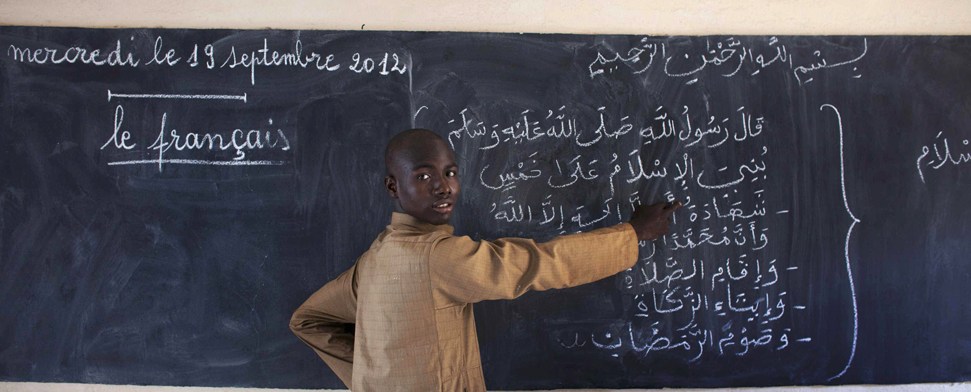 mercredi le 19 septembre 2012
le français
بِسْمِ اللَّهِ الرَّحْمَٰنِ الرَّحِيمِ
قَالَ رَسُولُ اللَّهِ صَلَّى اللَّهُ عَلَيْهِ وَسَلَّمَ
بُنِيَ الإِسْلَامُ عَلَى خَمْسٍ
- شَهَادَةُ إِلَّا اللَّهُ
وَأَنَّ مُحَمَّدًا
- وَإِقَامِ الصَّلَاةِ
- وَإِيتَاءِ الزَّكَاةِ
- وَصَوْمِ الرَّمَضَانَ